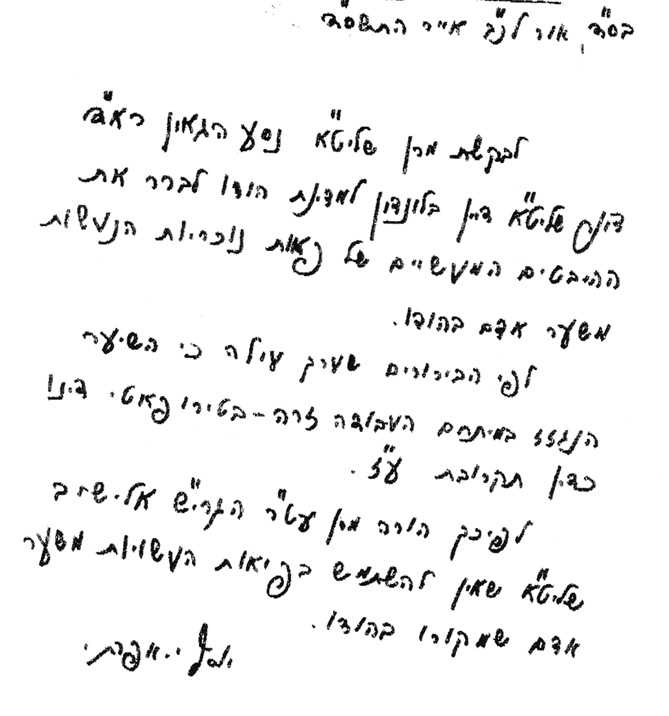 בס"ד, אור לכ"ב אייר התשס"ד
לבקשת מרן שליט"א נסע הגאון רא"ד
דונר שליט"א דיין בלונדון למדינת הודו לברר את
ההיבטים המעשיים של פאות נוכריות הנעשות
משער אדם בהודו.
לפי הבירורים שערך עולה כי השיער
הנגזז במיתחם העבודה זרה-בטירופאטי דינו
כדין תקרובת ע"ז.
לפיכך הורה מרן עט"ר הגרי"ש אלישיב
שליט"א שאין להשתמש בפיאות העשויות משער
אדם שמקורו בהודו.
יוסף י. אפרתי